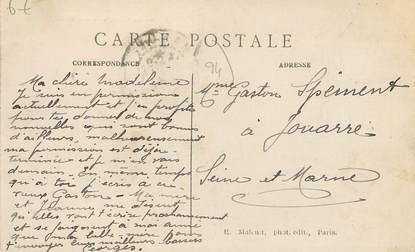 6€
CARTE POSTALE
CORRESPONDANCE
ADRESSE
94
Ma chère Madeleine
Je suis en permission
actuellement et j'en profite
pour te donner de mes
nouvelles qui sont bonnes
d'ailleurs, malheureusement
ma permission est déjà
terminée et je m'en vais
demain. En même temps
qu'à toi j'écris à ce
vieux Gaston. Ma mère
et me disent
qu'elles vont t'écrire prochainement
et se joignent à moi ainsi
que belle-mère pour
t'envoyer les meilleurs baisers
Georges
Mme Gaston Spement
à Jouarre
Seine et Marne
E. phot. édit., Paris.